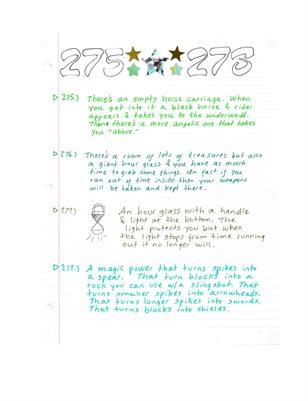 275 278
275.) There's an empty horse carriage. When
you get into it a black horse & rider
appears & takes you to the underworld.
there's a more angelic one that takes
you "above."
276.) There's a room of lots of treasures but also
a giant hour glass & you have as much
time to grab some things. In fact if you
run out of time inside then your weapons
will be taken and kept there.
277.) An hour glass with a handle
& light at the bottom. The
light protects you but when
the light stops from time running
out it no longer will.
278.) A magic power that turns spikes into
a spear. That turn blocks into a
rock you can use w/a slingshot. That
turns smaller spikes into arrowheads.
That turns longer spikes into swords.
That turns blocks into shields.